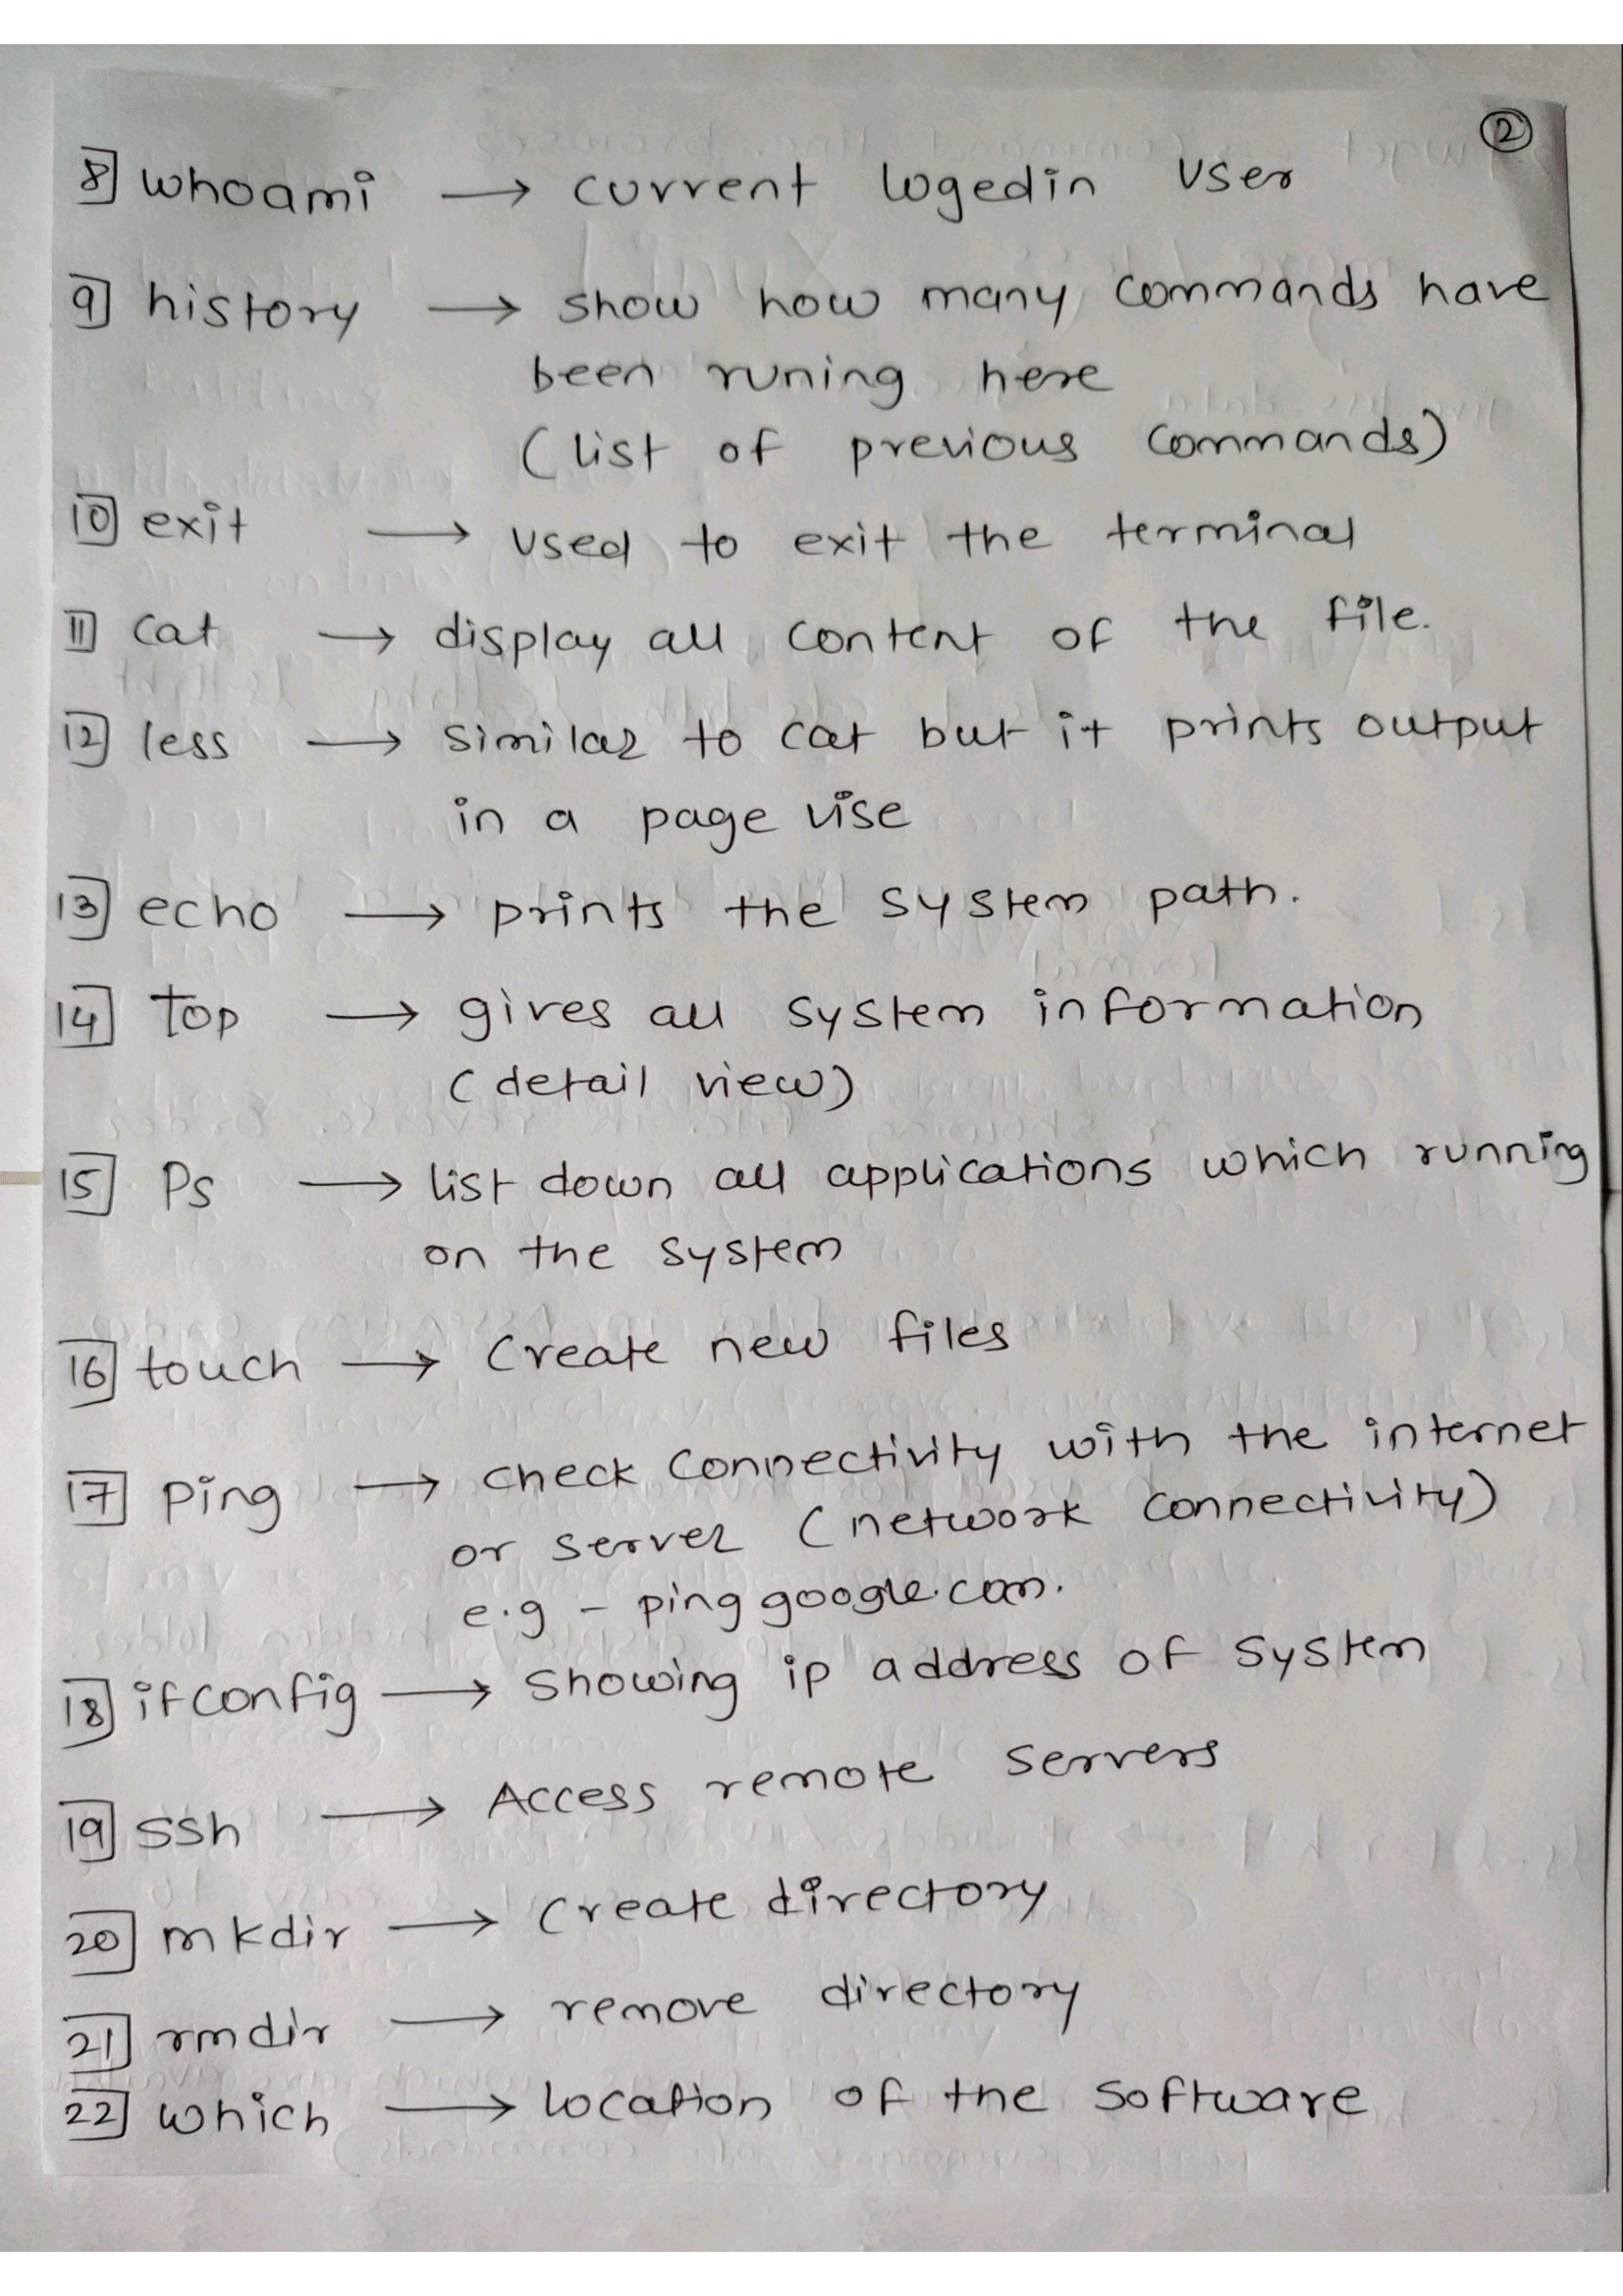 2
8 whoami → current logedin user
9 history → show how many commands have
been runing here
(list of previous commands)
10 exit → used to exit the terminal
11 cat → display all content of the file.
12 less → similar to cat but it prints output
in a page vise
13 echo → prints the system path.
14 top → gives all system information
(detail view)
15 Ps → list down all applications which running
on the system
16 touch → Create new files
17 ping → check connectivity with the internet
or server (network connectivity)
e.g - ping google.com.
18 ifconfig → showing ip address of system
19 ssh → Access remote servers
20 mkdir → Create directory
21 rmdir → remove directory
22 which → location of the software